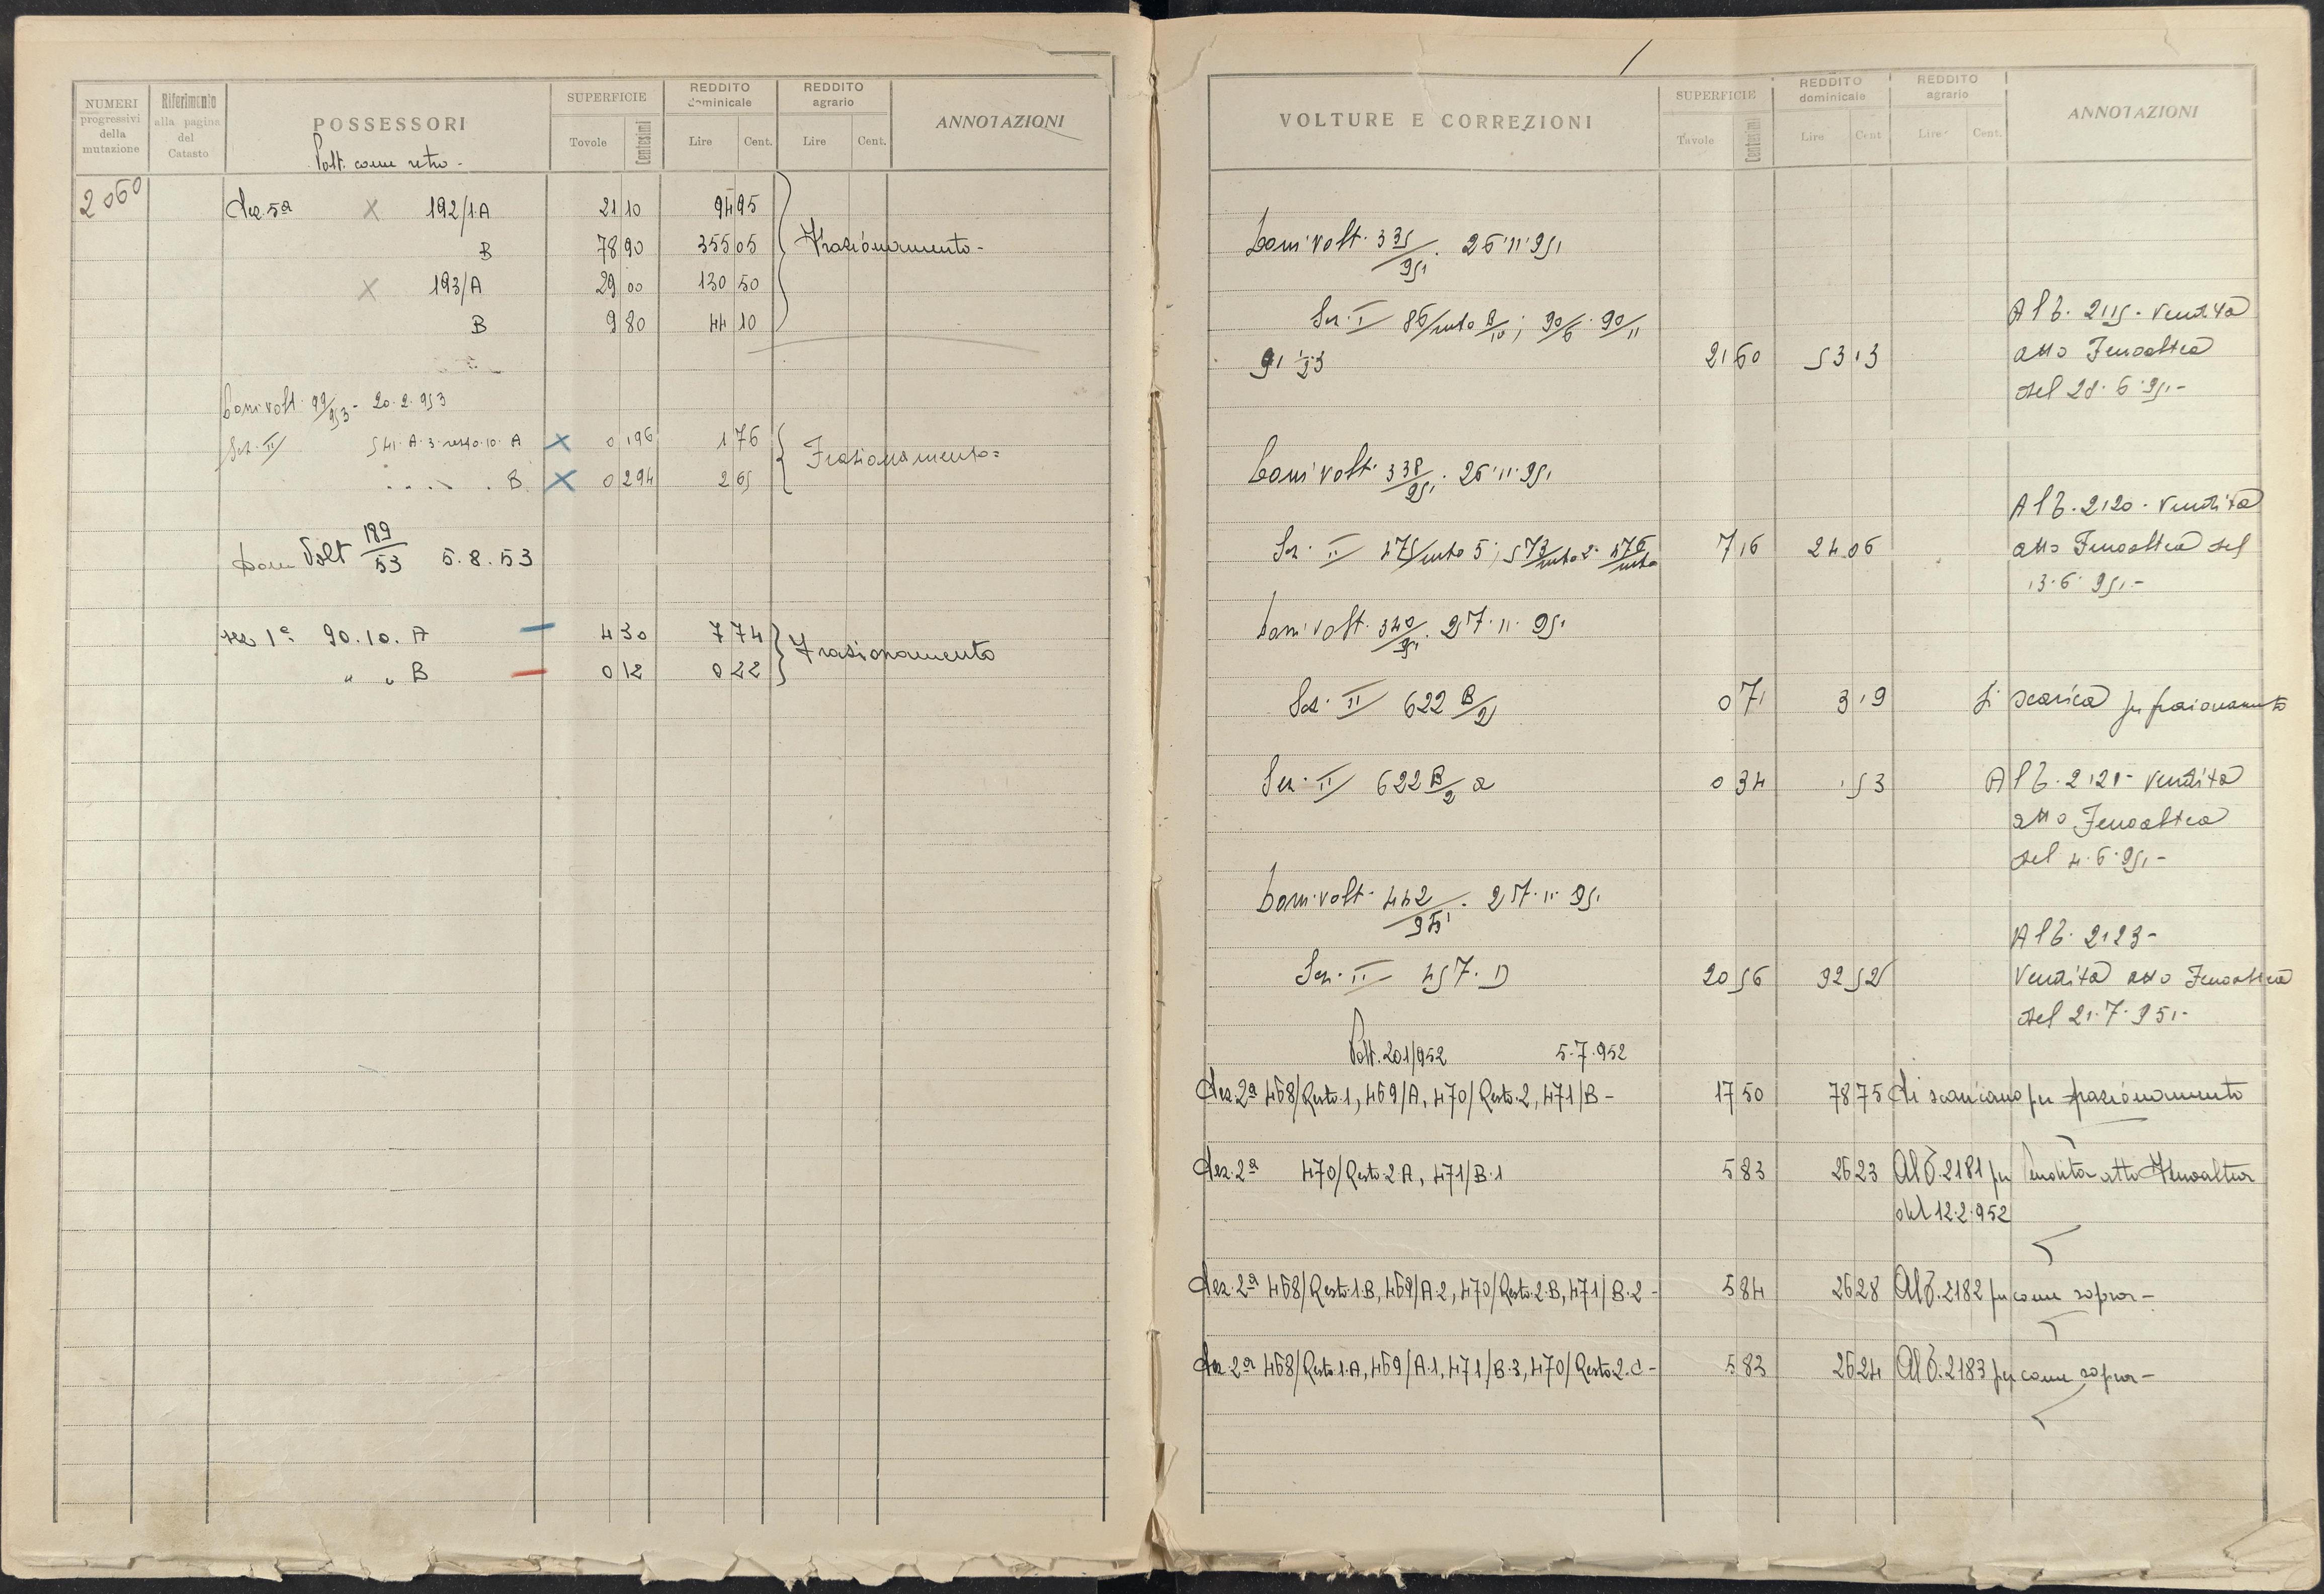 NUMERI progressivi della mutazione
Riferimento alla pagina del Catasto
POSSESSORI
Volt. come retro -
SUPERFICIE
Tavole Centesimi
REDDITO dominicale
Lire Cent.
REDDITO agrario
Lire Cent.
ANNOTAZIONI
2060 Sez. 5ª X 192/1A 21 10 94 95
B 78 90 355 05 Frazionamento -
X 193/A 29 00 130 50
B 9 80 44 10
Com. volt. 99/953 - 20.2.953
Sez. II 541. A. 3. resto 10. A X 0 196 1 76 Frazionamento =
. . . . . B X 0 294 2 65
Volt 189/53 5.8.53
sez 1ª 90.10. A 4 30 7 74 Frazionamento
" " B 0 12 0 22
VOLTURE E CORREZIONI
SUPERFICIE
Tavole Centesimi
REDDITO dominicale
Lire Cent
REDDITO agrario
Lire Cent.
ANNOTAZIONI
Com. volt. 335/951. 26.11.951
Al 6. 2115. Vendita
21 60 53 13 atto Fenoaltea
del 28. 6. 951. -
Com. volt. 338/951. 26.11.951
Al 6. 2120. Vendita
7 16 24 06 atto Fenoaltea del
13. 6. 951. -
Com. volt. 340/951. 27. 11. 951
Sez. II 622 B/2 0 71 3 19 Si scarica per frazionamento
Sez. II 622 B/2 a 0 34 1 53 Al 6. 2121 - Vendita
atto Fenoaltea
del 4. 6. 951. -
Com. volt. 442/951. 27. 11. 951
Al 6. 2123 -
Sez. II 457. D 20 56 92 52 Vendita atto Fenoaltea
del 21. 7. 951. -
Volt. 201/952 5.7.952
Sez. 2ª 468/Resto.1, 469/A, 470/Resto.2, 471/B - 17 50 78 75 Si scaricano per frazionamento
Sez. 2ª 470/Resto.2 A, 471/B.1 5 83 26 23 Al 6. 2181 per Vendita atto Fenoaltea
del 12.2.952
Sez. 2ª 468/Resto.1.B, 469/A.2, 470/Resto.2.B, 471/B.2 - 5 84 26 28 Al 6. 2182 per come sopra -
Sez. 2ª 468/Resto 1.A, 469/A.1, 471/B.3, 470/Resto 2.C - 5 83 26 24 Al 6. 2183 per come sopra -